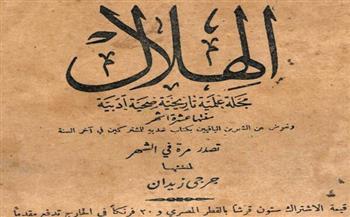 الهلال
مجلة علمية تاريخية صحية أدبية
سنتها عشرة اشهر
وتعوض عن الشهرين الباقيين بكتاب تهديه للمشتركين في آخر السنة
تصدر مرة في الشهر
لمنشئها
جرجي زيدان
قيمة الاشتراك ستون قرشاً بالقطر المصري و ٢٠ فرنكاً في الخارج تدفع مقدماً